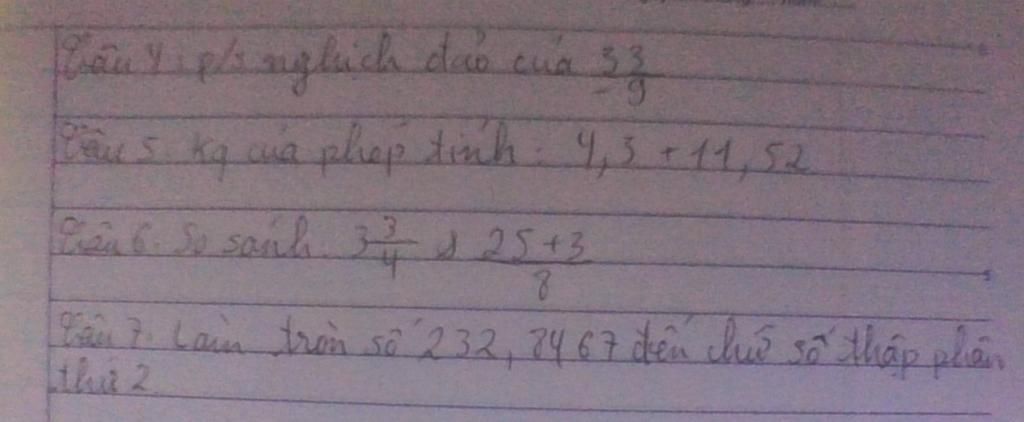 Câu 4: p/s nghịch đảo của 33/-9
Câu 5. Kq của phép tính: 4,3 + 11,52
Câu 6. So sánh 3 3/4 & 25+3/8
Câu 7. Làm tròn số 232,8467 đến chữ số thập phân
thứ 2